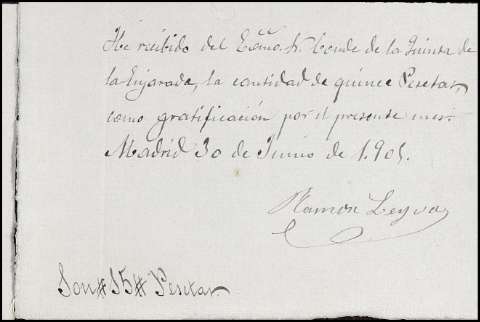 He recibido del Excmo. Sr. Conde de la Quinta de
la Enjarada, la cantidad de quince Pesetas
como gratificación por el presente mes.
Madrid 30 de Junio de 1.905.
Ramon Leyva
Son # 15 # Pesetas